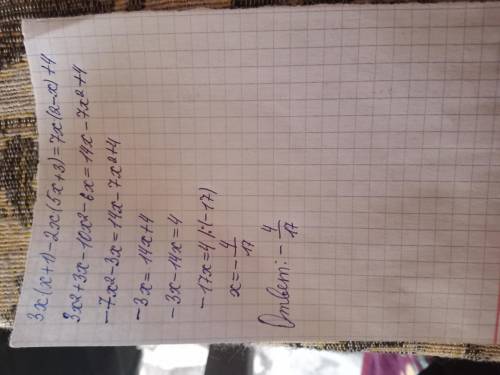 3x(x+1)-2x(5x+3)=7x(2-x)+4
3x2+3x-10x2-6x=14x-7x2+4
-7x2-3x=14x-7x2+4
-3x=14x+4
-3x-14x=4
-17x=4 |:(-17)
x=-4/17
Ответ: -4/17